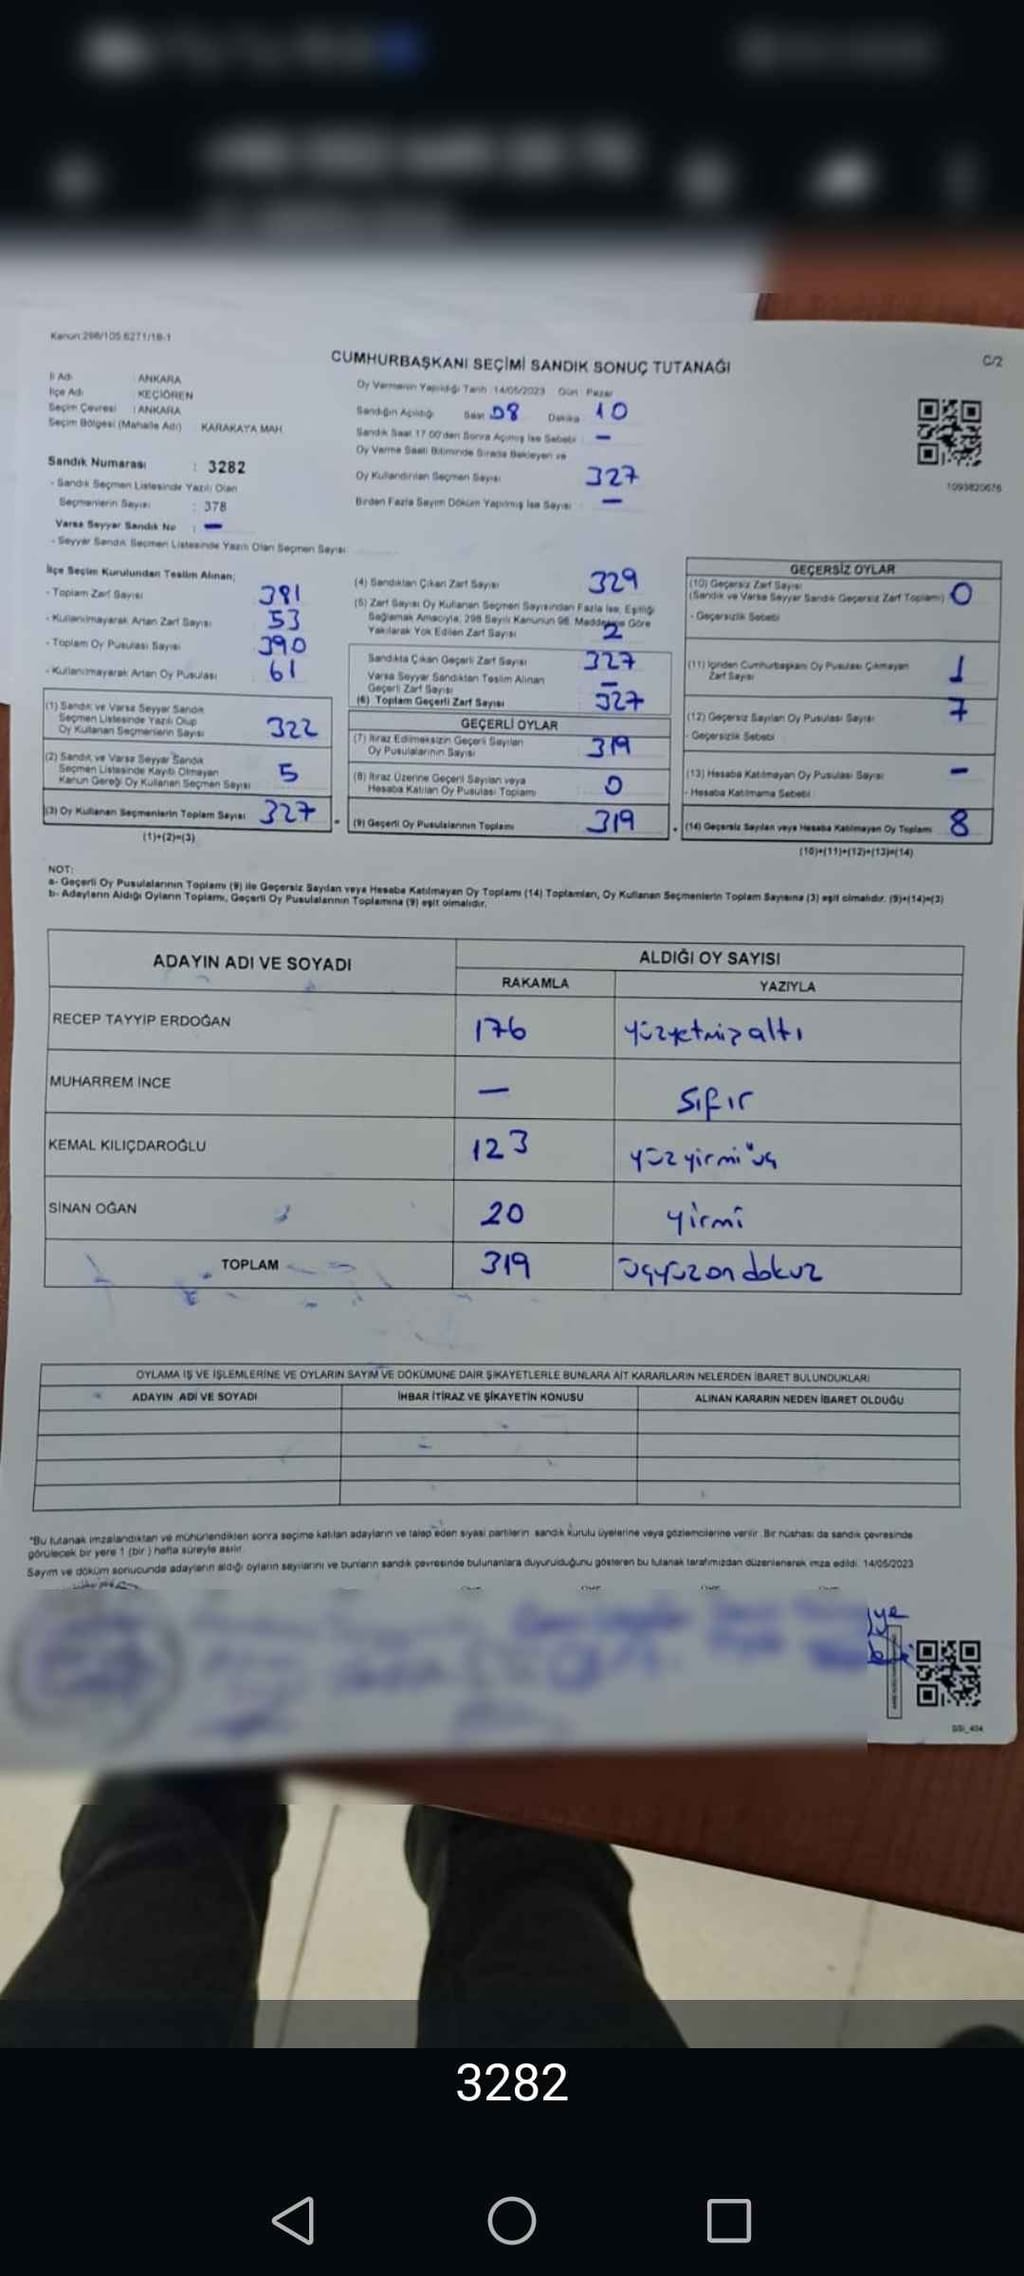 Kanun:298/105.6271/18-1
CUMHURBAŞKANI SEÇİMİ SANDIK SONUÇ TUTANAĞI
C/2
İl Adı : ANKARA
İlçe Adı : KEÇİÖREN
Seçim Çevresi : ANKARA
Seçim Bölgesi (Mahalle Adı) KARAKAYA MAH
Sandık Numarası : 3282
- Sandık Seçmen Listesinde Yazılı Olan
Seçmenlerin Sayısı : 378
Varsa Seyyar Sandık No : —
- Seyyar Sandık Seçmen Listesinde Yazılı Olan Seçmen Sayısı
Oy Vermenin Yapıldığı Tarih :14/05/2023 Gün : Pazar
Sandığın Açıldığı Saat 08 Dakika 10
Sandık Saat 17:00'den Sonra Açmış İse Sebebi : —
Oy Verme Saati Bitiminde Sırada Bekleyen ve
Oy Kullandırılan Seçmen Sayısı 327
Birden Fazla Sayım Döküm Yapılmış İse Sayısı : —
1093820676
İlçe Seçim Kurulundan Teslim Alınan;
- Toplam Zarf Sayısı 381
- Kullanılmayarak Artan Zarf Sayısı 53
- Toplam Oy Pusulası Sayısı 390
- Kullanılmayarak Artan Oy Pusulası 61
(1) Sandık ve Varsa Seyyar Sandık
Seçmen Listesinde Yazılı Olup
Oy Kullanan Seçmenlerin Sayısı 322
(2) Sandık ve Varsa Seyyar Sandık
Seçmen Listesinde Kayıtlı Olmayan
Kanun Gereği Oy Kullanan Seçmen Sayısı 5
(3) Oy Kullanan Seçmenlerin Toplam Sayısı 327
(1)+(2)=(3)
(4) Sandıktan Çıkan Zarf Sayısı 329
(5) Zarf Sayısı Oy Kullanan Seçmen Sayısından Fazla İse, Eşitliği
Sağlamak Amacıyla, 298 Sayılı Kanunun 98. Maddesine Göre
Yakılarak Yok Edilen Zarf Sayısı 2
Sandıkta Çıkan Geçerli Zarf Sayısı 327
Varsa Seyyar Sandıktan Teslim Alınan
Geçerli Zarf Sayısı —
(6) Toplam Geçerli Zarf Sayısı 327
GEÇERLİ OYLAR
(7) İtiraz Edilmeksizin Geçerli Sayılan
Oy Pusulalarının Sayısı 319
(8) İtiraz Üzerine Geçerli Sayılan veya
Hesaba Katılan Oy Pusulası Toplamı 0
(9) Geçerli Oy Pusulalarının Toplamı 319
GEÇERSİZ OYLAR
(10) Geçersiz Zarf Sayısı
(Sandık ve Varsa Seyyar Sandık Geçersiz Zarf Toplamı) 0
- Geçersizlik Sebebi
(11) İçinden Cumhurbaşkanı Oy Pusulası Çıkmayan
Zarf Sayısı 1
(12) Geçersiz Sayılan Oy Pusulası Sayısı 7
- Geçersizlik Sebebi
(13) Hesaba Katılmayan Oy Pusulası Sayısı —
- Hesaba Katılmama Sebebi
(14) Geçersiz Sayılan veya Hesaba Katılmayan Oy Toplamı 8
(10)+(11)+(12)+(13)=(14)
NOT:
a- Geçerli Oy Pusulalarının Toplamı (9) ile Geçersiz Sayılan veya Hesaba Katılmayan Oy Toplamı (14) Toplamları, Oy Kullanan Seçmenlerin Toplam Sayısına (3) eşit olmalıdır. (9)+(14)=(3)
b- Adayların Aldığı Oyların Toplamı, Geçerli Oy Pusulalarının Toplamına (9) eşit olmalıdır.
ADAYIN ADI VE SOYADI ALDIĞI OY SAYISI
RAKAMLA YAZIYLA
RECEP TAYYİP ERDOĞAN 176 yüzyetmişaltı
MUHARREM İNCE — sıfır
KEMAL KILIÇDAROĞLU 123 yüzyirmiüç
SİNAN OĞAN 20 yirmi
TOPLAM 319 üçyüzondokuz
OYLAMA İŞ VE İŞLEMLERİNE VE OYLARIN SAYIM VE DÖKÜMÜNE DAİR ŞİKAYETLERLE BUNLARA AİT KARARLARIN NELERDEN İBARET BULUNDUKLARI
ADAYIN ADI VE SOYADI İHBAR İTİRAZ VE ŞİKAYETİN KONUSU ALINAN KARARIN NEDEN İBARET OLDUĞU
*Bu tutanak imzalandıktan ve mühürlendikten sonra seçime katılan adayların ve talep eden siyasi partilerin sandık kurulu üyelerine veya gözlemcilerine verilir. Bir nüshası da sandık çevresinde
görülecek bir yere 1 (bir) hafta süreyle asılır.
Sayım ve döküm sonucunda adayların aldığı oyların sayılarını ve bunların sandık çevresinde bulunanlara duyurulduğunu gösteren bu tutanak tarafımızdan düzenlenerek imza edildi. 14/05/2023
3282